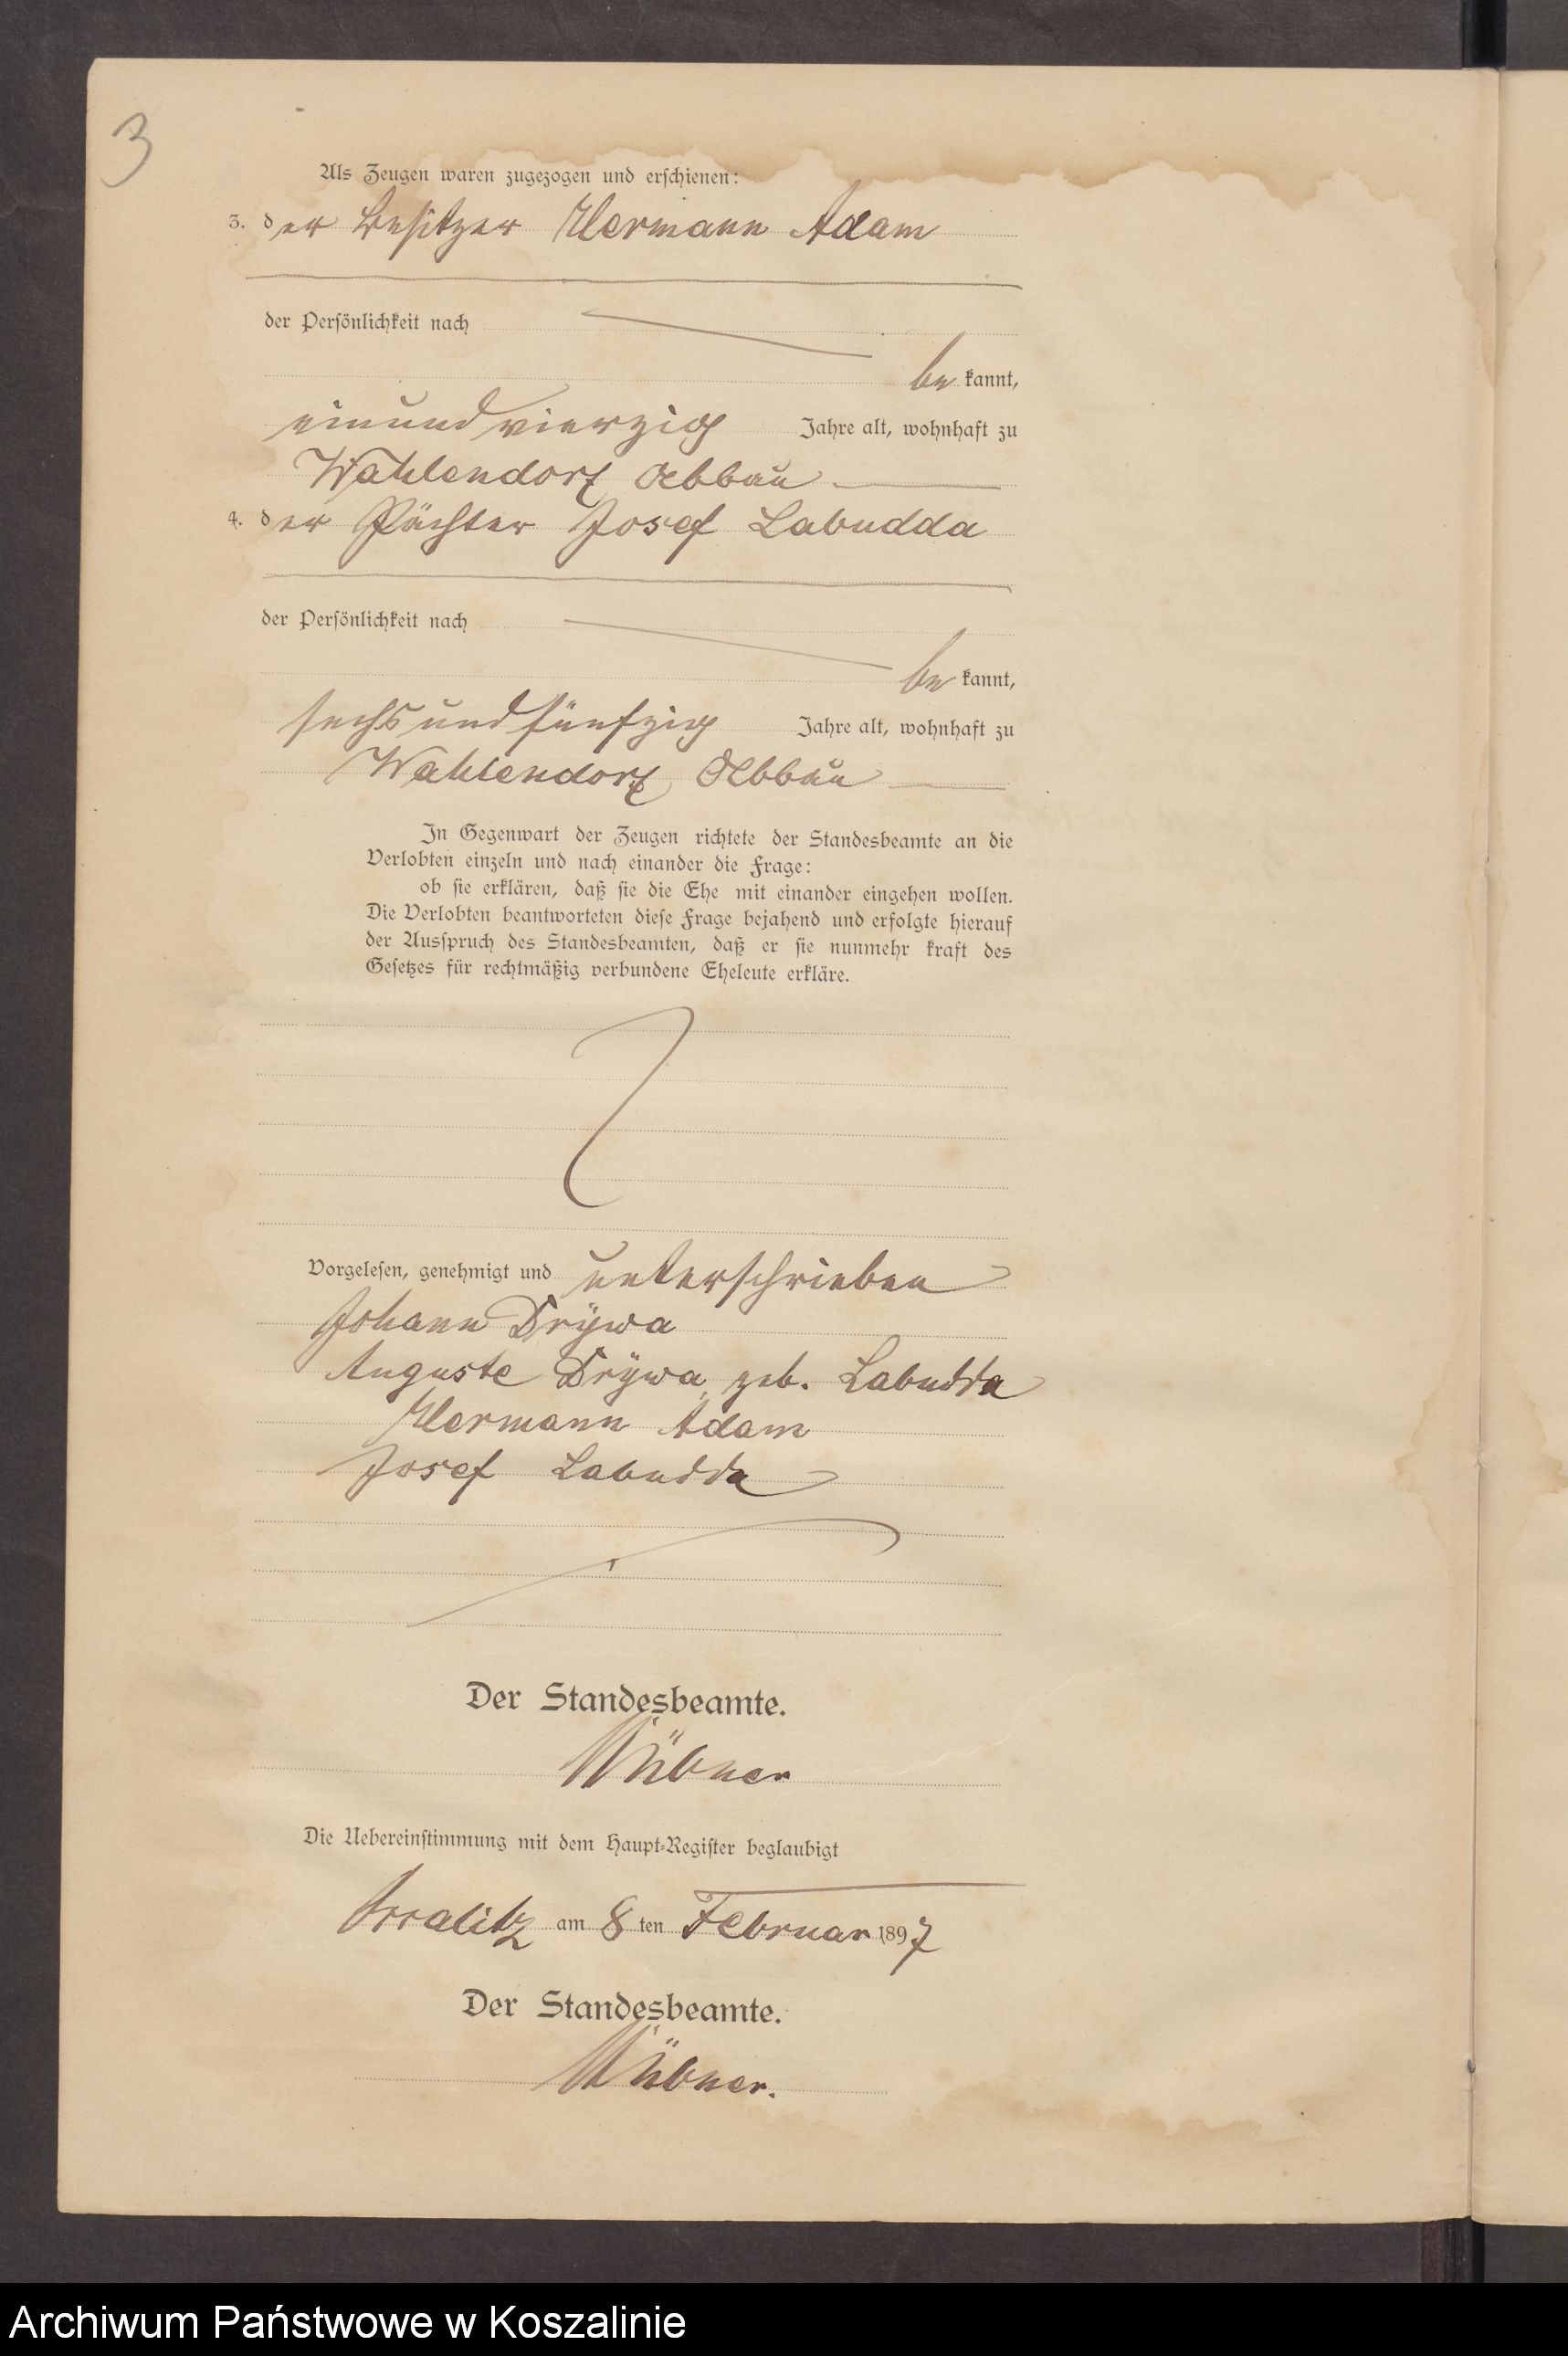 3
Als Zeugen waren zugezogen und erschienen:
3. der Besitzer Hermann Adam
der Persönlichkeit nach
bekannt,
einundvierzig Jahre alt, wohnhaft zu
Wahlendorf Abbau
4. der Pächter Josef Labudda
der Persönlichkeit nach
bekannt,
sechsundfünfzig Jahre alt, wohnhaft zu
Wahlendorf Abbau
In Gegenwart der Zeugen richtete der Standesbeamte an die
Verlobten einzeln und nach einander die Frage:
ob sie erklären, daß sie die Ehe mit einander eingehen wollen.
Die Verlobten beantworteten diese Frage bejahend und erfolgte hierauf
der Ausspruch des Standesbeamten, daß er sie nunmehr kraft des
Gesetzes für rechtmäßig verbundene Eheleute erkläre.
Vorgelesen, genehmigt und unterschrieben
Johann Drÿwa
Auguste Drÿwa geb. Labudda
Hermann Adam
Josef Labudda
Der Standesbeamte.
Die Uebereinstimmung mit dem Haupt-Register beglaubigt
am 8ten Februar 1897
Der Standesbeamte.
Archiwum Państwowe w Koszalinie